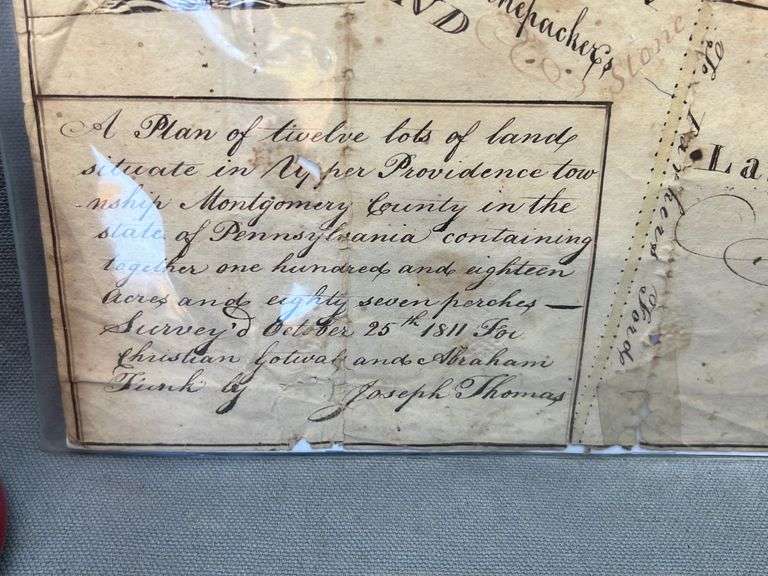 nepackers
ND
Stone
To Parkers Ford
La
A Plan of twelve lots of land
situate in Upper Providence tow
nship Montgomery County in the
state of Pennsylvania containing
together one hundred and eighteen
Acres and eighty seven perches —
Survey'd October 25th 1811 For
Christian Gotwal and Abraham
Funk by Joseph Thomas